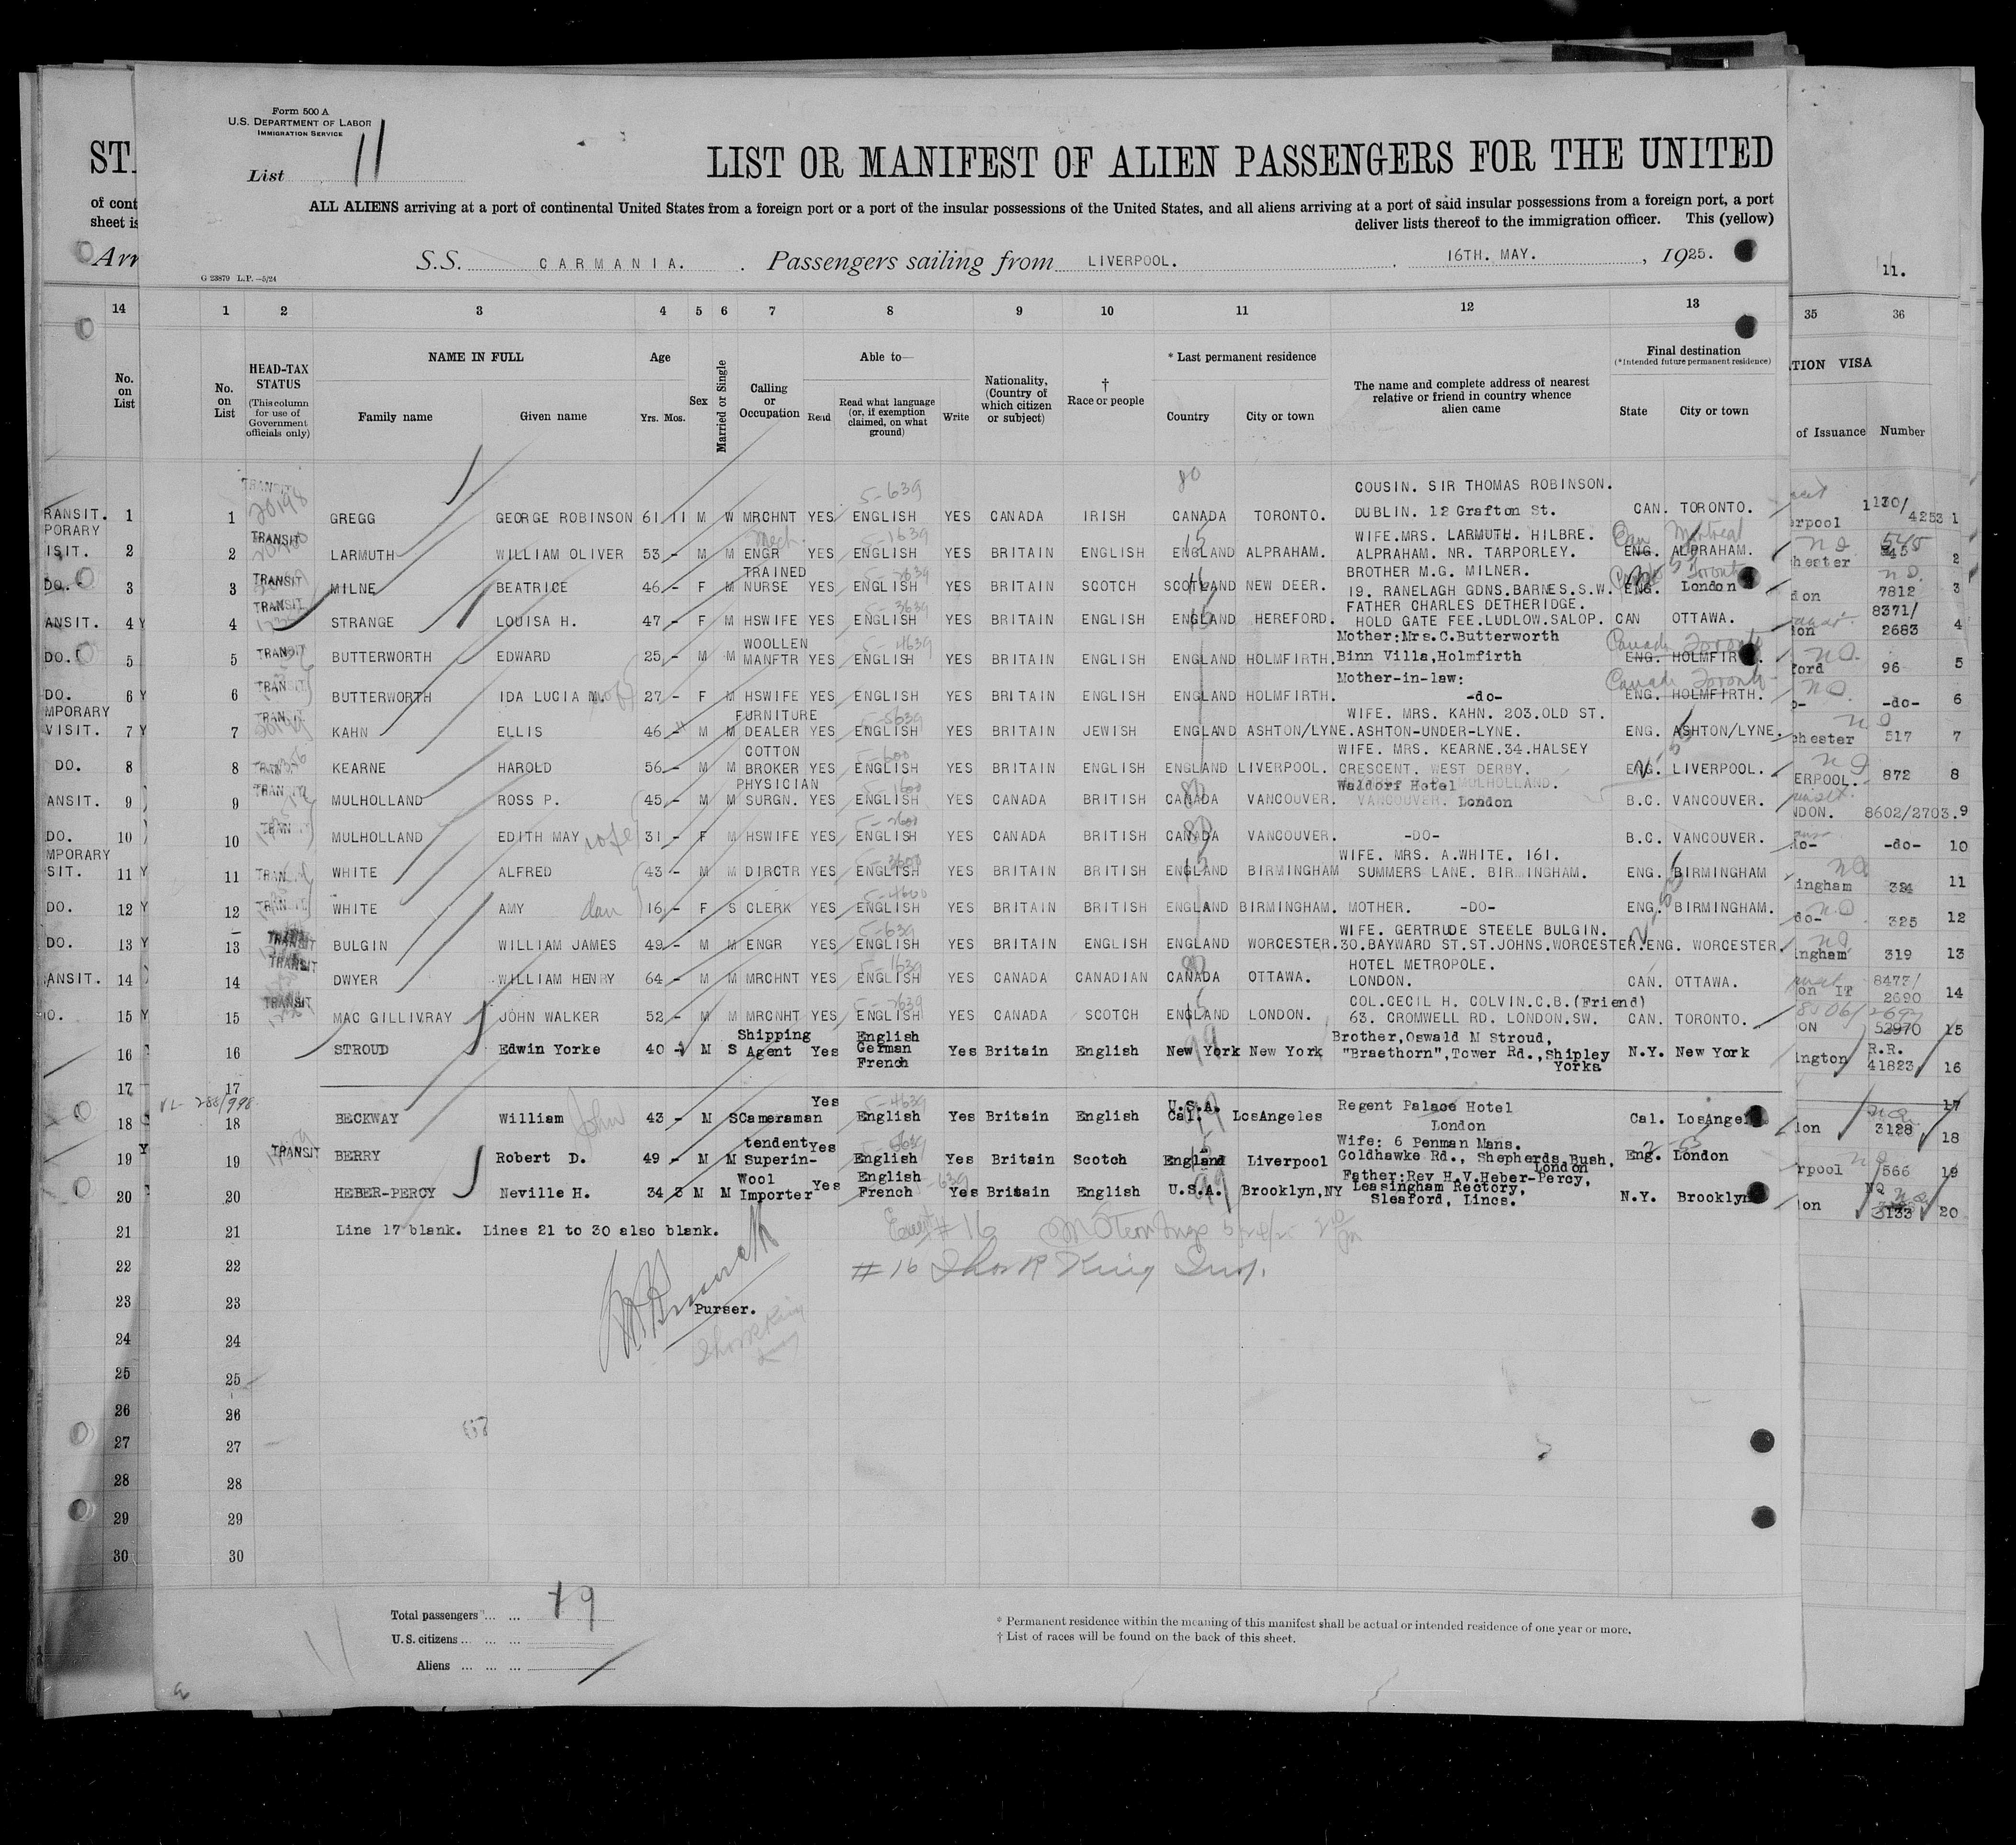 Form 500 A
U.S. DEPARTMENT OF LABOR
IMMIGRATION SERVICE
List 11
LIST OR MANIFEST OF ALIEN PASSENGERS FOR THE UNITED
ALL ALIENS arriving at a port of continental United States from a foreign port or a port of the insular possessions of the United States, and all aliens arriving at a port of said insular possessions from a foreign port, a port
deliver lists thereof to the immigration officer. This (yellow)
S.S. CARMANIA. Passengers sailing from LIVERPOOL. 16TH. MAY. , 1925.
G 23879 L.P.—5/24
11.
14 1 2 3 4 5 6 7 8 9 10 11 12 13 35 36
No. on List
No. on List
HEAD-TAX STATUS
(This column for use of Government officials only)
NAME IN FULL
Family name Given name
Age
Yrs. Mos.
Sex
Married or Single
Calling or Occupation
Able to—
Read
Read what language (or, if exemption claimed, on what ground)
Write
Nationality, (Country of which citizen or subject)
† Race or people
* Last permanent residence
Country City or town
The name and complete address of nearest relative or friend in country whence alien came
Final destination
(*Intended future permanent residence)
State City or town
of Issuance Number
COUSIN. SIR THOMAS ROBINSON.
1 GREGG GEORGE ROBINSON 61 11 M W MRCHNT YES ENGLISH YES CANADA IRISH CANADA TORONTO. DUBLIN. 12 Grafton St. CAN. TORONTO. 1130/ 4253 1
WIFE.MRS. LARMUTH. HILBRE. Can Montreal
2 TRANSIT LARMUTH WILLIAM OLIVER 53 - M M ENGR YES ENGLISH YES BRITAIN ENGLISH ENGLAND ALPRAHAM. ALPRAHAM. NR. TARPORLEY. ENG. ALPRAHAM. 2
TRAINED BROTHER M.G. MILNER.
3 TRANSIT MILNE BEATRICE 46 - F M NURSE YES ENGLISH YES BRITAIN SCOTCH SCOTLAND NEW DEER. 19. RANELAGH GDNS.BARNES.S.W. ENG. London 7812 3
FATHER CHARLES DETHERIDGE.
4 TRANSIT STRANGE LOUISA H. 47 - F M HSWIFE YES ENGLISH YES BRITAIN ENGLISH ENGLAND HEREFORD. HOLD GATE FEE.LUDLOW.SALOP. CAN OTTAWA. 8371/ 2683 4
WOOLLEN Mother:Mrs.C.Butterworth Canada Toronto
5 TRANSIT BUTTERWORTH EDWARD 25 - M M MANFTR YES ENGLISH YES BRITAIN ENGLISH ENGLAND HOLMFIRTH. Binn Villa,Holmfirth ENG. HOLMFIRTH. 96 5
Mother-in-law: Canada Toronto
6 TRANSIT BUTTERWORTH IDA LUCIA M. wife 27 - F M HSWIFE YES ENGLISH YES BRITAIN ENGLISH ENGLAND HOLMFIRTH. -do- ENG. HOLMFIRTH. -do- 6
FURNITURE WIFE. MRS. KAHN. 203.OLD ST.
7 KAHN ELLIS 46 - M M DEALER YES ENGLISH YES BRITAIN JEWISH ENGLAND ASHTON/LYNE. ASHTON-UNDER-LYNE. ENG. ASHTON/LYNE. 517 7
COTTON WIFE. MRS. KEARNE.34.HALSEY
8 KEARNE HAROLD 56 - M M BROKER YES ENGLISH YES BRITAIN ENGLISH ENGLAND LIVERPOOL. CRESCENT. WEST DERBY. ENG. LIVERPOOL. 872 8
PHYSICIAN Waldorf Hotel
9 MULHOLLAND ROSS P. 45 - M M SURGN. YES ENGLISH YES CANADA BRITISH CANADA VANCOUVER. London B.C. VANCOUVER. 8602/2703. 9
10 MULHOLLAND EDITH MAY wife 31 - F M HSWIFE YES ENGLISH YES CANADA BRITISH CANADA VANCOUVER. -DO- B.C. VANCOUVER. -do- 10
WIFE. MRS. A.WHITE. 161.
11 WHITE ALFRED 43 - M M DIRCTR YES ENGLISH YES BRITAIN BRITISH ENGLAND BIRMINGHAM SUMMERS LANE. BIRMINGHAM. ENG. BIRMINGHAM 324 11
12 WHITE AMY dau 16 - F S CLERK YES ENGLISH YES BRITAIN BRITISH ENGLAND BIRMINGHAM. MOTHER. -DO- ENG. BIRMINGHAM. 325 12
WIFE. GERTRUDE STEELE BULGIN.
13 TRANSIT BULGIN WILLIAM JAMES 49 - M M ENGR YES ENGLISH YES BRITAIN ENGLISH ENGLAND WORCESTER. 30.BAYWARD ST.ST.JOHNS.WORCESTER. ENG. WORCESTER. 319 13
HOTEL METROPOLE.
14 TRANSIT DWYER WILLIAM HENRY 64 - M M MRCHNT YES ENGLISH YES CANADA CANADIAN CANADA OTTAWA. LONDON. CAN. OTTAWA. 8477/ 2690 14
COL.CECIL H. COLVIN.C.B.(Friend)
15 TRANSIT MAC GILLIVRAY JOHN WALKER 52 - M M MRCNHT YES ENGLISH YES CANADA SCOTCH ENGLAND LONDON. 63. CROMWELL RD. LONDON.SW. CAN. TORONTO. 52970 15
Shipping English Brother,Oswald M Stroud,
16 STROUD Edwin Yorke 40 - M S Agent Yes German Yes Britain English New York New York "Braethorn",Tower Rd.,Shipley N.Y. New York R.R. 41823 16
French Yorks
17 17
Yes U.S.A. Regent Palace Hotel
18 BECKWAY William John 43 - M S Cameraman English Yes Britain English Cal. LosAngeles London Cal. LosAngel 3128 18
tendent Yes Wife: 6 Penman Mans.
19 TRANSIT BERRY Robert D. 49 - M M Superin- English Yes Britain Scotch England Liverpool Goldhawke Rd., Shepherds Bush, London Eng. London 566 19
Wool English Father:Rev H.V.Heber-Percy,
20 HEBER-PERCY Neville H. 34 3 M M Importer Yes French Yes Britain English U.S.A. Brooklyn,NY Leasingham Rectory, N.Y. Brooklyn 3133 20
Sleaford, Lincs.
21 Line 17 blank. Lines 21 to 30 also blank.
22 # 16 Thos R King Insp.
23 Purser.
24
25
26
27
28
29
30
Total passengers ... ... 19
U.S. citizens ... ... ...
Aliens ... ... ...
* Permanent residence within the meaning of this manifest shall be actual or intended residence of one year or more.
† List of races will be found on the back of this sheet.